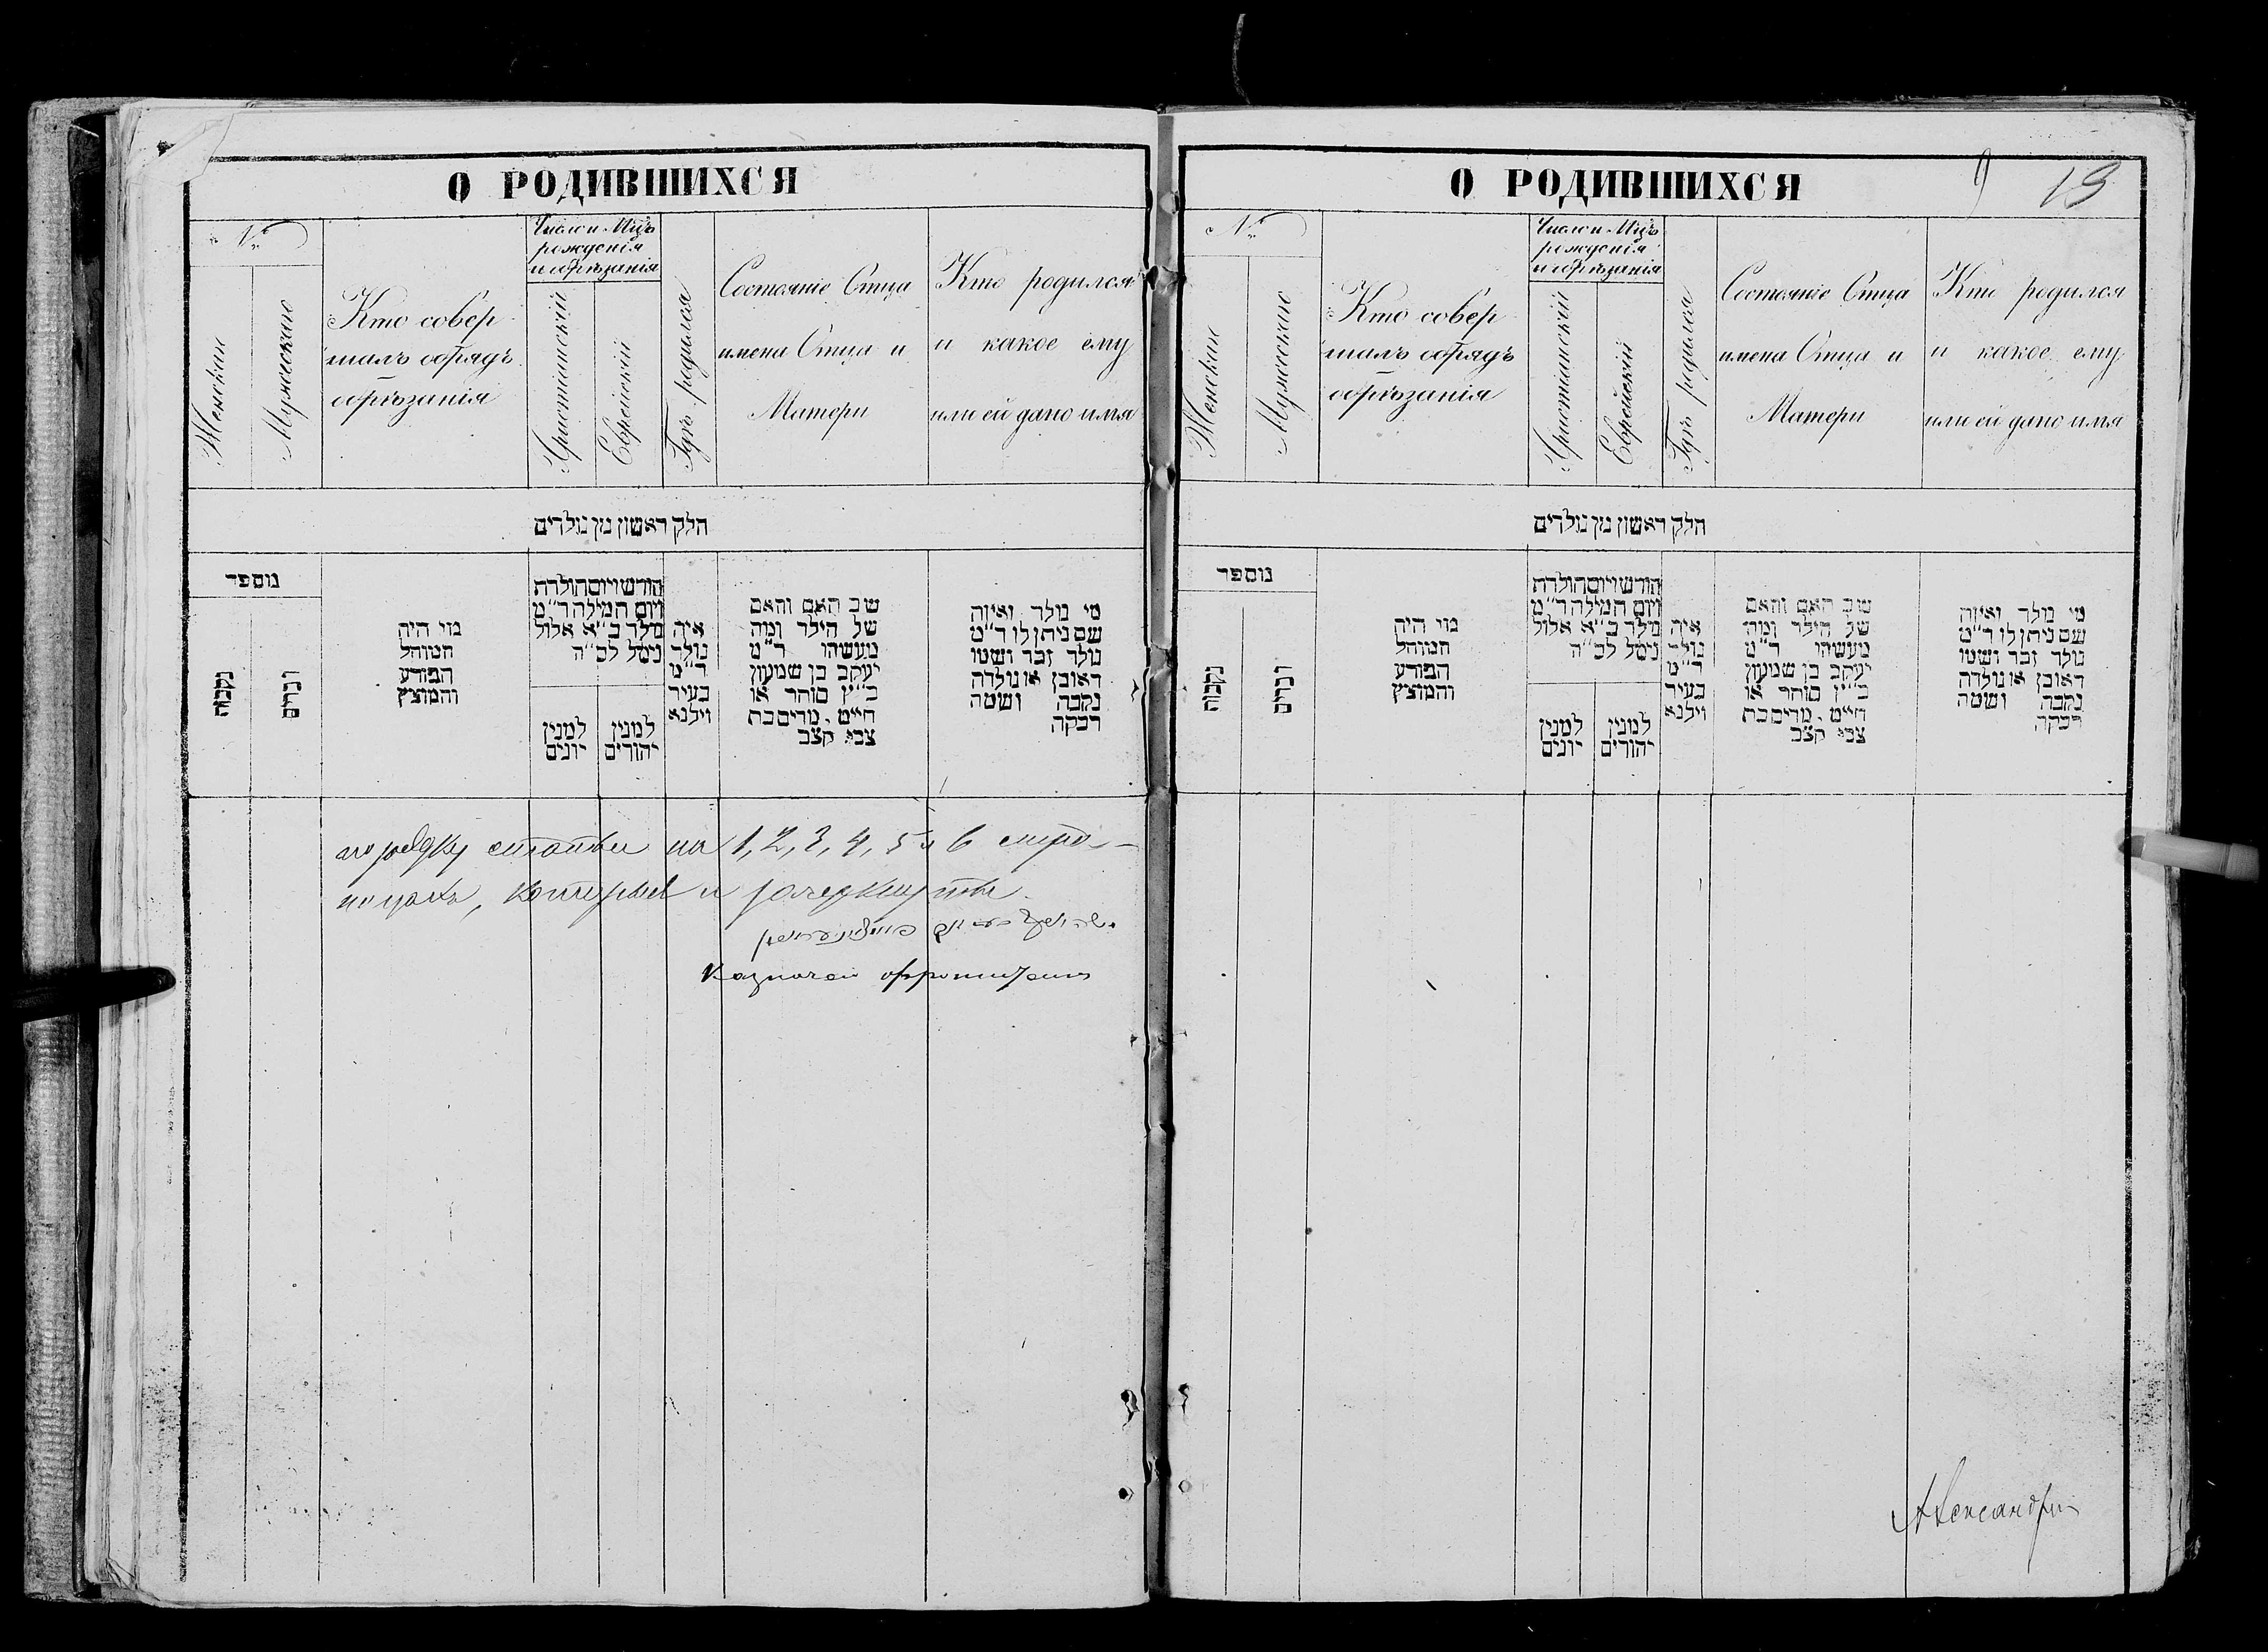 О РОДИВШИХСЯ
№
Женскаго
Мужескаго
Кто совер
шалъ обрядъ
обрѣзанія
Число и Мѣцъ
рожденія
и обрѣзанія
Християнскій
Еврейскій
Гдѣ родился
Состояніе Отца
имена Отца и
Матери
Кто родился
и какое ему
или ей дано имя
חלק ראשון מן נולדים
מספר
נקבות
זכרים
מי היה
המוהל
הפורע
והמוצץ
חודש ויום הולדת
ויום המילה ד"מ
נולד כ"א אלול
ניסל לס"ה
למנין
יונים
למנין
יהודים
איה
נולד
ד"מ
בעיר
וילנא
שם האב והאם
של הילד ומה
מעשהו ד"מ
יעקב בן שמעון
כ"ץ סוחר או
חייט, מרים בת
צבי קצב
מי נולד ואיזה
שם ניתן לו ד"מ
נולד זכר ושמו
ראובן או נולדה
נקבה ושמה
רבקה
порядку статьи на 1, 2, 3, 4, 5 и 6 стра-
ницахъ, которыя и
Казначей
О РОДИВШИХСЯ
9 13
№
Женскаго
Мужескаго
Кто совер
шалъ обрядъ
обрѣзанія
Число и Мѣцъ
рожденія
и обрѣзанія
Християнскій
Еврейскій
Гдѣ родился
Состояніе Отца
имена Отца и
Матери
Кто родился
и какое ему
или ей дано имя
חלק ראשון מן נולדים
מספר
נקבות
זכרים
מי היה
המוהל
הפורע
והמוצץ
חודש ויום הולדת
ויום המילה ד"מ
נולד כ"א אלול
ניסל לס"ה
למנין
יונים
למנין
יהודים
איה
נולד
ד"מ
בעיר
וילנא
שם האב והאם
של הילד ומה
מעשהו ד"מ
יעקב בן שמעון
כ"ץ סוחר או
חייט, מרים בת
צבי קצב
מי נולד ואיזה
שם ניתן לו ד"מ
נולד זכר ושמו
ראובן או נולדה
נקבה ושמה
רבקה